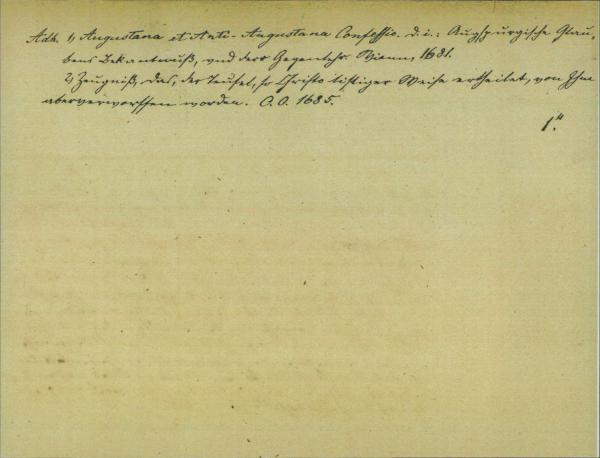 Adh. 1, Augustana et Anti-Augustana Confessio. d. i.: Augspurgische Glau-
bens Bekantnuß, vnd dero Gegentheil. Vienn, 1681.
2, Zeugniß, das, der Teufel, so Christo listiger Weise ertheilet, von Ihm
aber verworffen worden. O. O. 1685.
1."